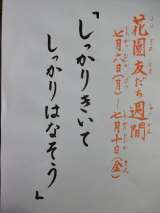 花園友だち週間
七月六日(月)－七月十日(金)
「しっかりきいて
しっかりはなそう」